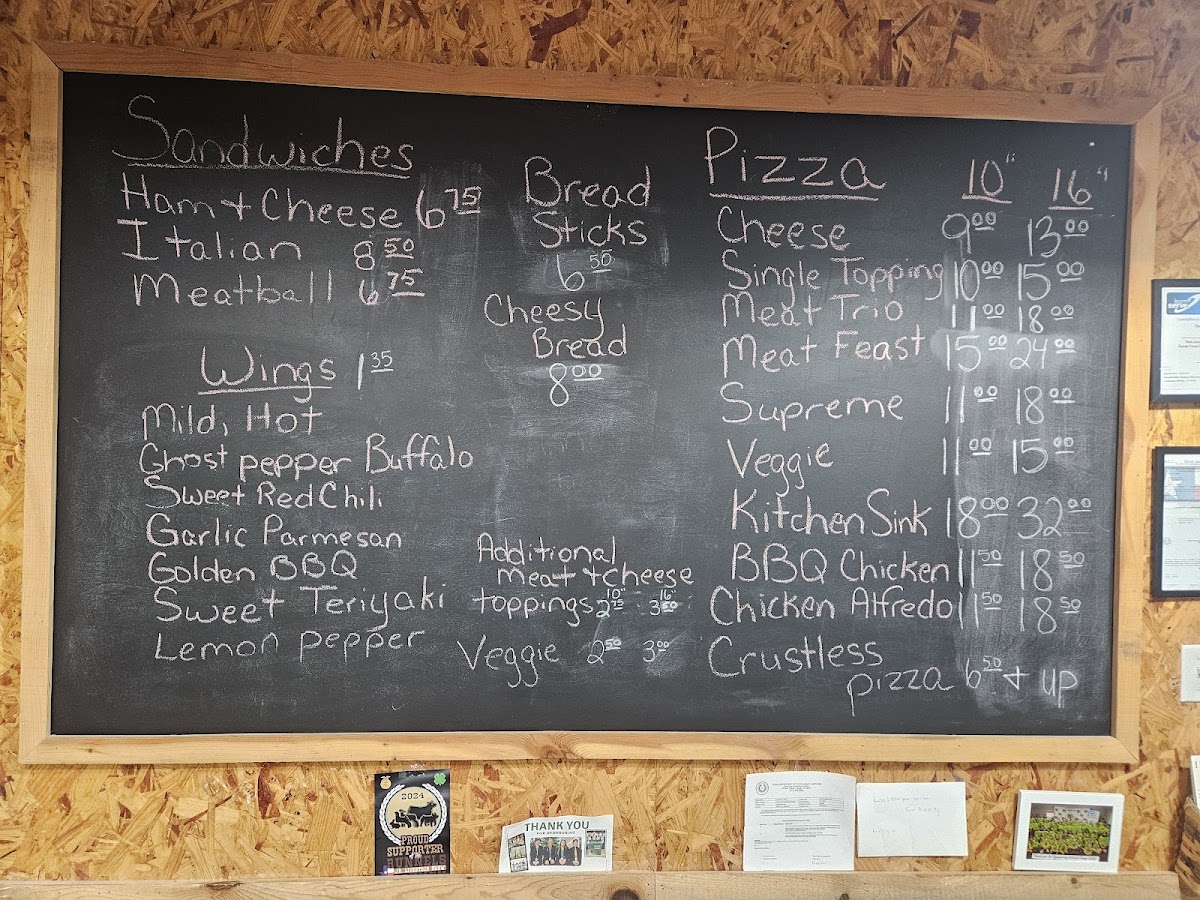 Sandwiches
Ham + Cheese 6.75
Italian 8.50
Meatball 6.75
Wings 1.35
Mild, Hot
Ghost pepper Buffalo
Sweet Red Chili
Garlic Parmesan
Golden BBQ
Sweet Teriyaki
Lemon pepper
Bread
Sticks
6.50
Cheesy
Bread
8.00
Additional
meat + cheese
10" 16"
toppings 2.75 3.50
Veggie 2.50 3.00
Pizza 10" 16"
Cheese 9.00 13.00
Single Topping 10.00 15.00
Meat Trio 11.00 18.00
Meat Feast 15.00 24.00
Supreme 11.00 18.00
Veggie 11.00 15.00
Kitchen Sink 18.00 32.00
BBQ Chicken 11.50 18.50
Chicken Alfredo 11.50 18.50
Crustless
pizza 6.50 + up
2024
PROUD
SUPPORTER
THANK YOU